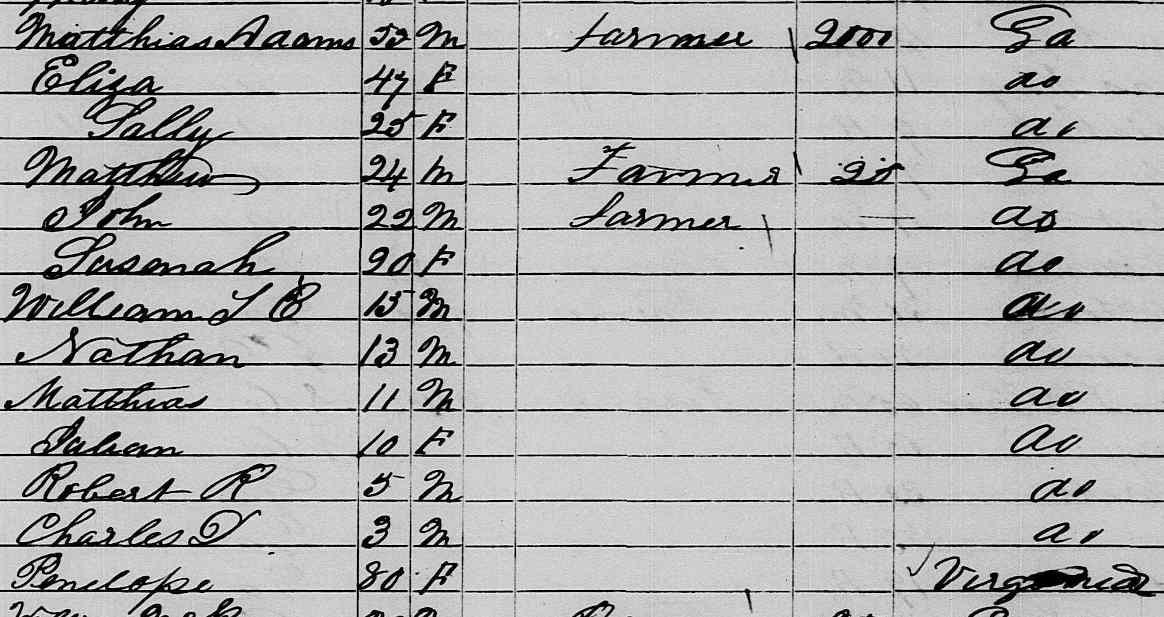 Matthias Adams 52 M Farmer 2000 Ga
Eliza 47 F do
Sally 25 F do
Matthew 24 M Farmer Ga
John 22 M Farmer — do
Susenah 20 F do
William S B 15 M do
Nathan 13 M do
Matthias 11 M do
10 F do
Robert R 5 M do
Charles D 3 M do
Penelope 80 F Virginia